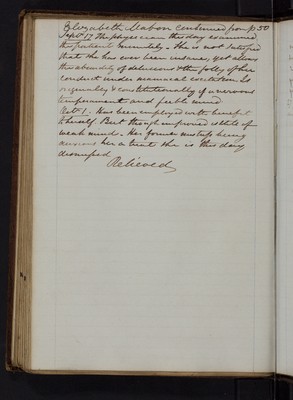 Elizabeth Mabon continued from p 50
Sept 17 The physician this day examined
this patient minutely & she is not satisfied
that she has ever been insane, yet allows
the absurdity of delusions & the folly of her
conduct under maniacal excitation. Is
originally & constitutionally of a nervous
temperament and feeble mind
Octr 1. Has been employed with benefit
to herself. But though improved is still of
weak mind. Her former mistress being
anxious her a treat she is this day
dismissed
Relieved